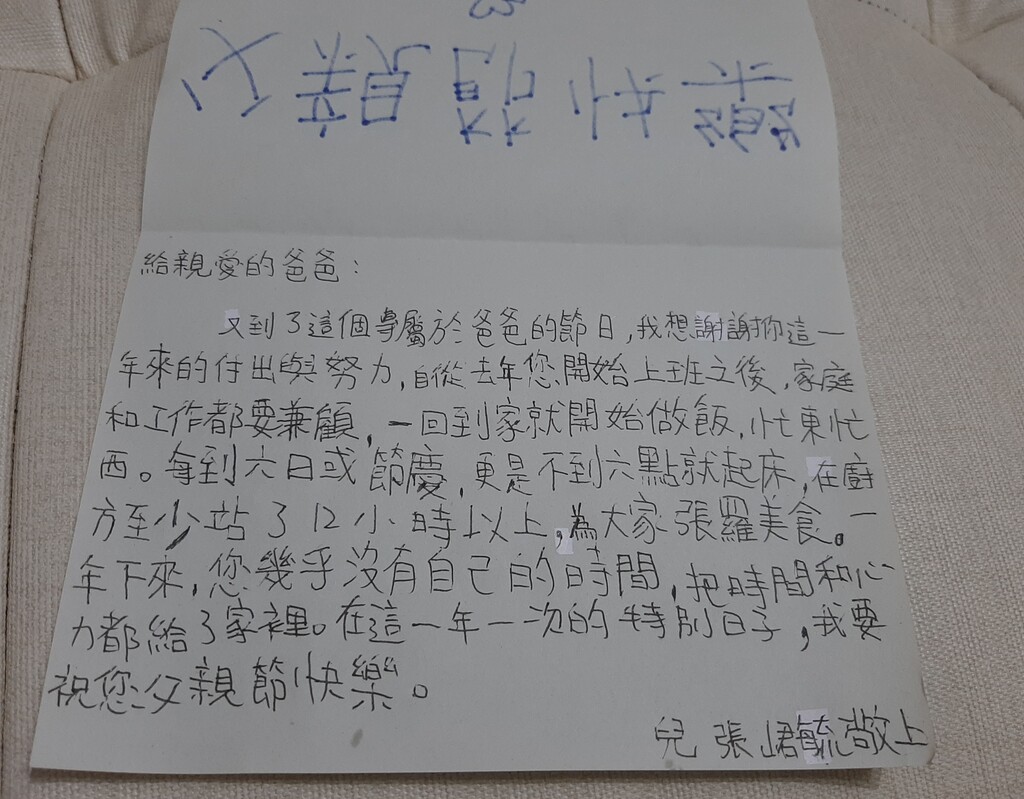 父親節快樂
給親愛的爸爸:
又到了這個專屬於爸爸的節日,我想謝謝你這一
年來的付出與努力,自從去年您開始上班之後,家庭
和工作都要兼顧,一回到家就開始做飯,忙東忙
西。每到六日或節慶,更是不到六點就起床,在廚
方至少站了12小時以上,為大家張羅美食。一
年下來,您幾乎沒有自己的時間,把時間和心
力都給了家裡。在這一年一次的特別日子,我要
祝您父親節快樂。
兒 張峮毓敬上